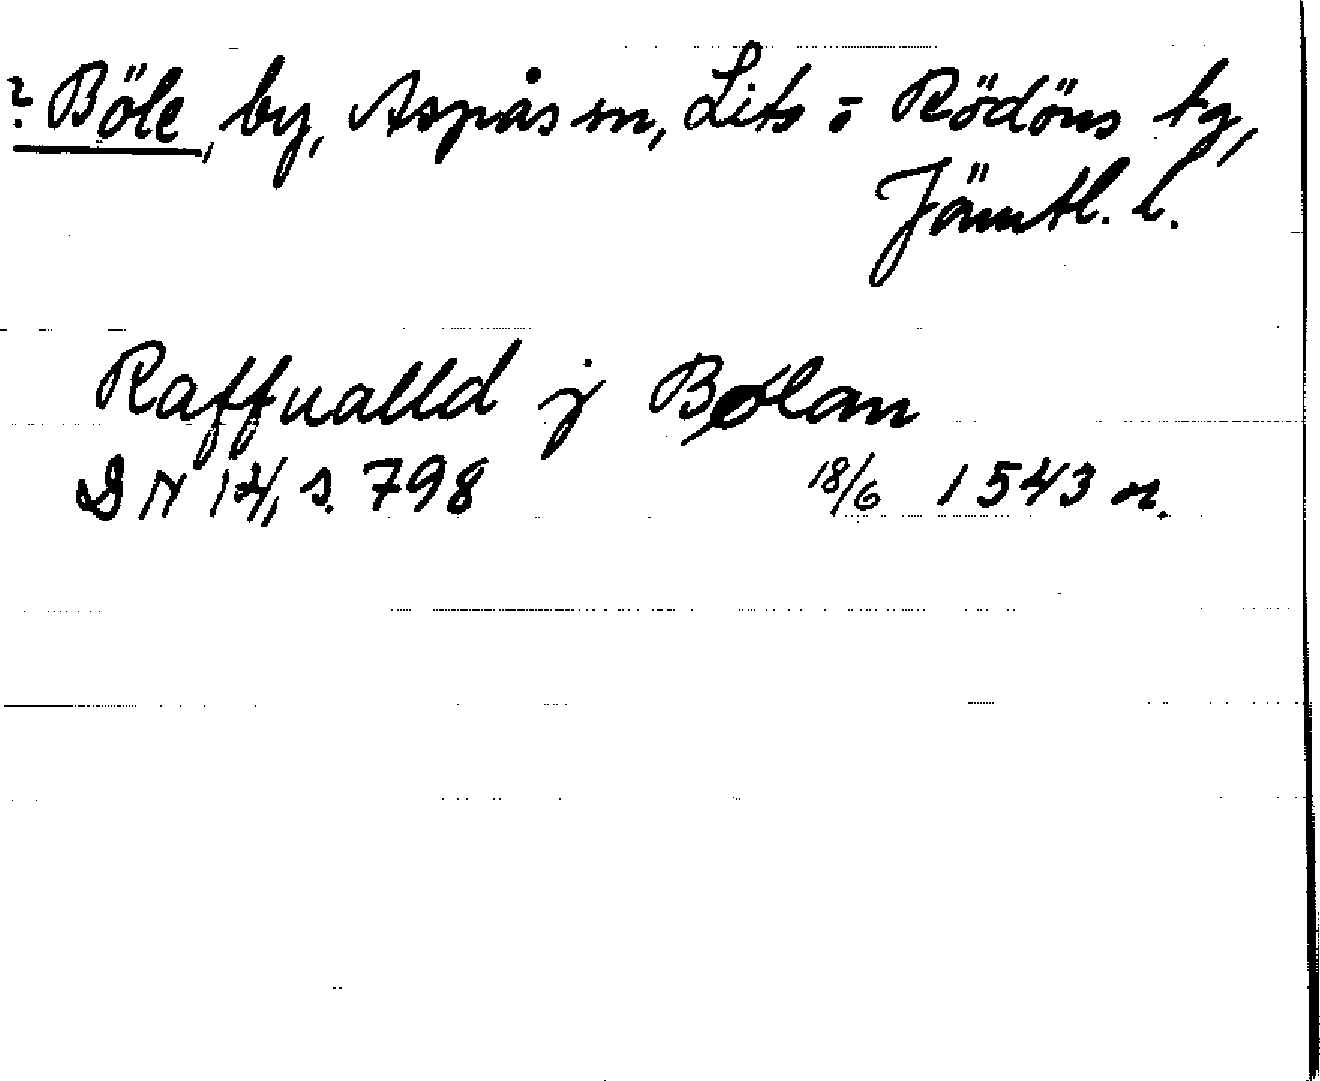 ? Böle, by, Aspås sn, Lits o Rödöns tg,
Jämtl. l.
Raffualld j Bølan
DN 14, s. 798 18/6 1543 or.